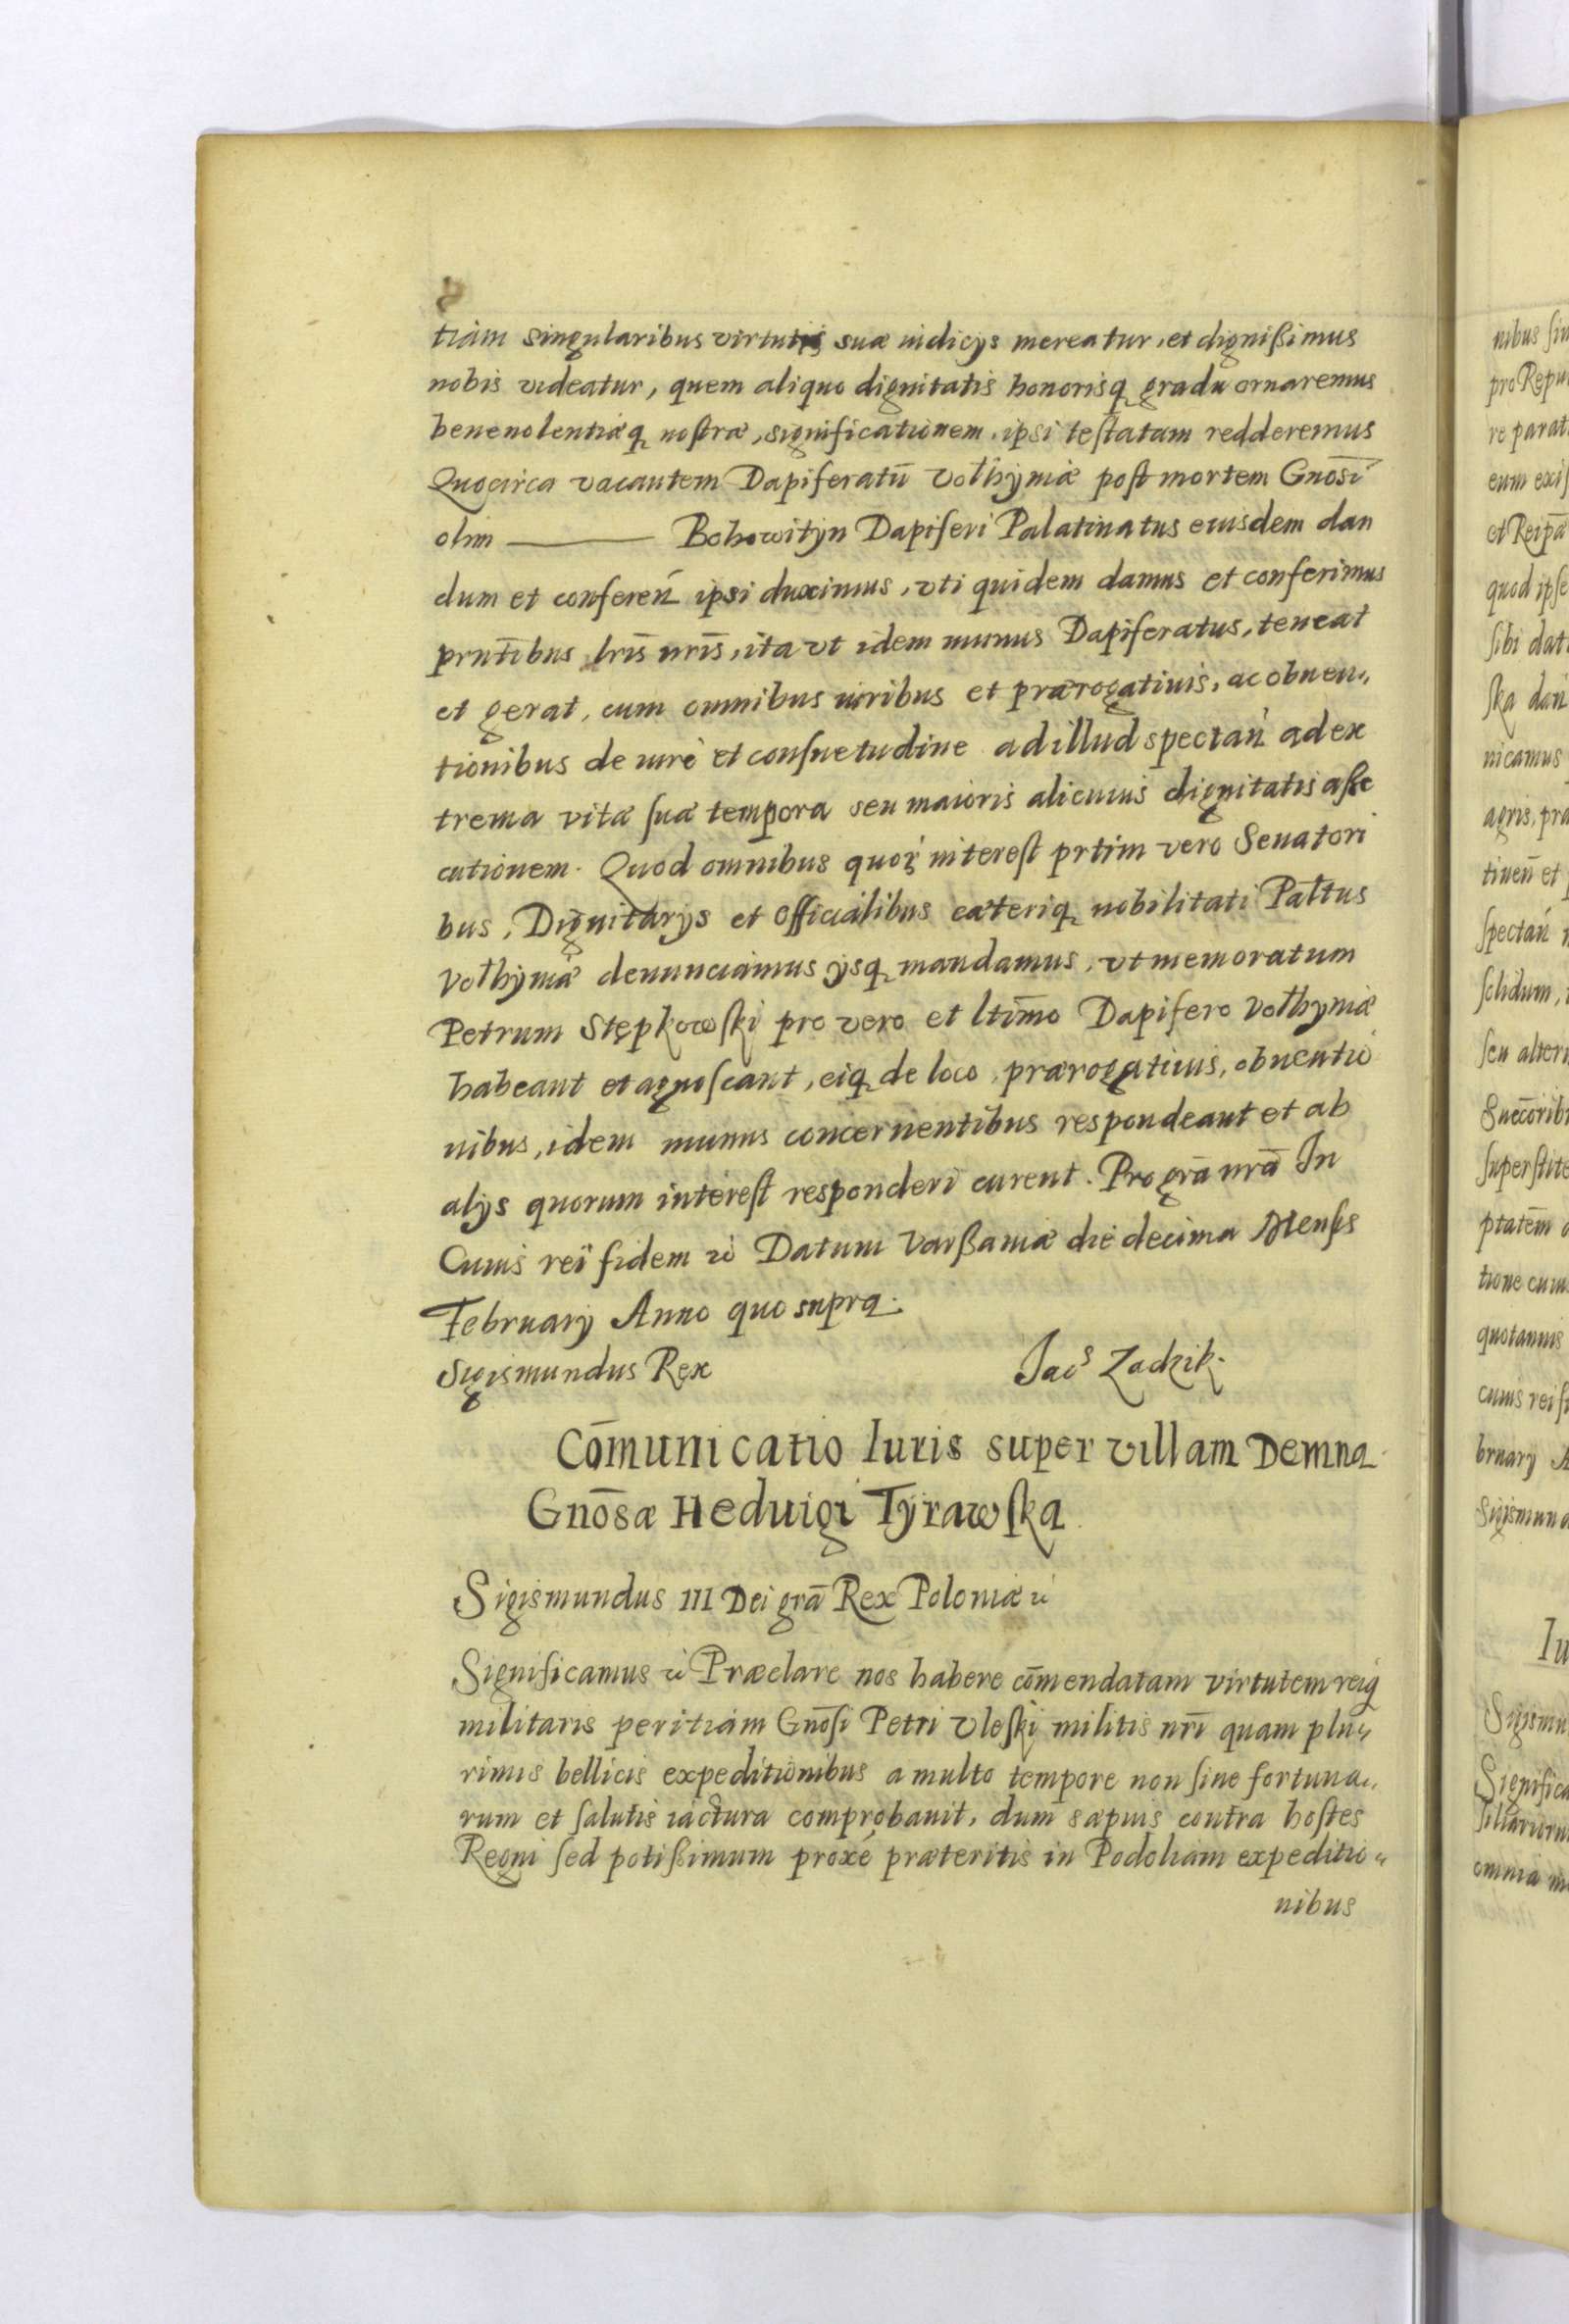 tiam singularibus virtutis suæ indicijs mereatur, et dignißimus
nobis videatur, quem aliquo dignitatis honorisq gradu ornaremus
beneuolentiæq nostræ, significationem ipsi testatam redderemus
Quocirca vacantem Dapiferatū Volhyniæ post mortem Gnōsi
olim ——— Bohowityn Dapiferi Palatinatus eiusdem dan
dum et conferen̄ ipsi duximus, vti quidem damus et conferimus
prntībus lrīs nrīs, ita vt idem munus Dapiferatus, teneat
et gerat, cum omnibus iuribus et prærogatiuis, ac obuen„
tionibus de iure et consuetudine ad illud spectan̄ ad ex
trema vitæ suæ tempora seu maioris alicuius dignitatis asse
cutionem. Quod omnibus quoꝝ interest prtim vero Senatori
bus, Dignitarijs et Officialibus cæteriq nobilitati Paltus
Volhyniæ denunciamus ijsq mandamus, vt memoratum
Petrum Stępkowski pro vero et ltīmo Dapifero Volhyniæ
habeant et agnoscant, eiq de loco, prærogatiuis, obuentio
nibus, idem munus concernentibus respondeant et ab
alijs quorum interest responderi curent. Pro grā nrā In
Cuius rei fidem &c Datum Varßauiæ die decima Mensis
February Anno quo supra.
Sigismundus Rex Jac⁹ Zadzik.
Cōmunicatio Iuris super villam Demna
Gnōsæ Heduigi Tyrawska
Sigismundus III Dei grā Rex Poloniæ &c
Significamus &c Præclare nos habere cōmendatam virtutem reiq
militaris peritiam Gnōsi Petri Vleski militis nrī quam plu„
rimis bellicis expeditionibus a multo tempore non sine fortuna„
rum et salutis iactura comprobauit, dum sæpius contra hostes
Regni sed potißimum proxé præteritis in Podoliam expeditio„
nibus